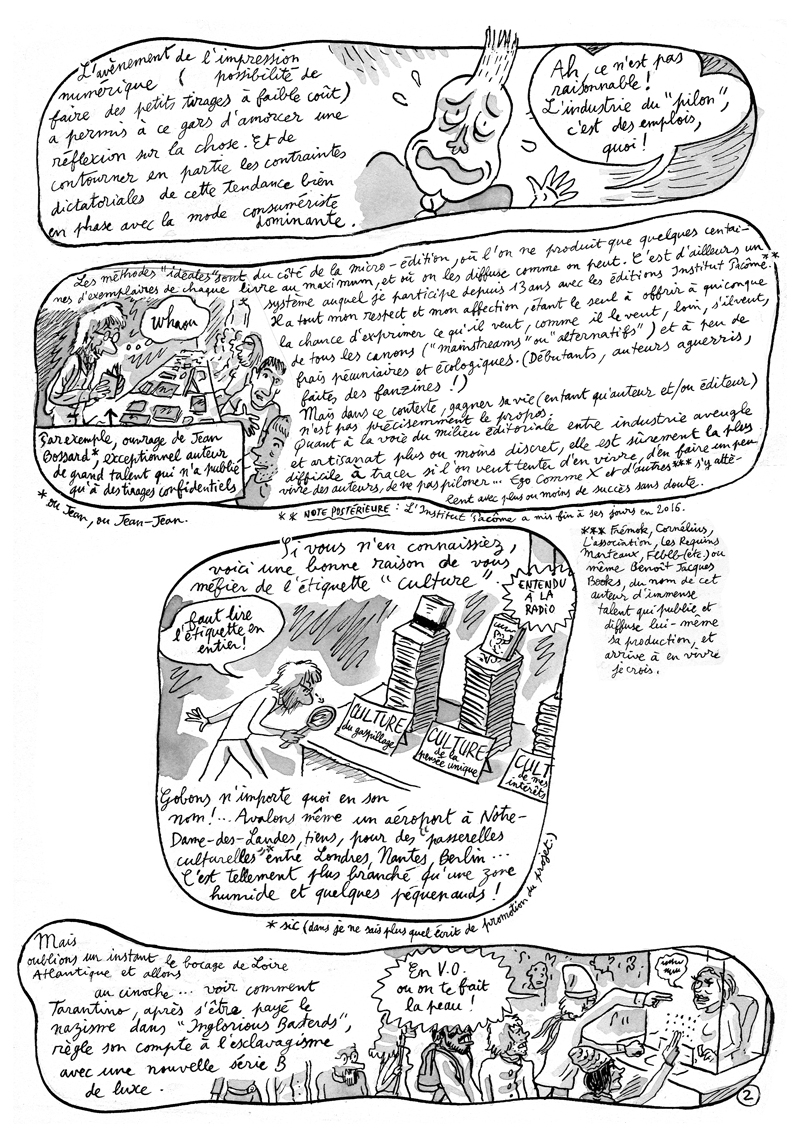 L'avènement de l'impression
numérique ( possibilité de
faire des petits tirages à faible coût)
a permis à ce gars d'amorcer une
réflexion sur la chose. Et de
contourner en partie les contraintes
dictatoriales de cette tendance bien
en phase avec la mode consumériste
dominante.
Ah, ce n'est pas
raisonnable!
L'industrie du "pilon",
c'est des emplois,
quoi!
Les méthodes "idéales" sont du côté de la micro-édition, où l'on ne produit que quelques centai-
nes d'exemplaires de chaque livre au maximum, et où on les diffuse comme on peut. C'est d'ailleurs un
système auquel je participe depuis 13 ans avec les éditions Institut Pacôme.**
Il a tout mon respect et mon affection, étant le seul à offrir à quiconque
la chance d'exprimer ce qu'il veut, comme il le veut, loin, s'il veut,
de tous les canons ("mainstreams" ou "alternatifs") et à peu de
frais pécuniaires et écologiques. (Débutants, auteurs aguerris,
faites des fanzines!)
Mais dans ce contexte, gagner sa vie (en tant qu'auteur et/ou éditeur)
n'est pas précisemment le propos.
Quant à la voie du milieu éditoriale entre industrie aveugle
et artisanat plus ou moins discret, elle est sûrement la plus
difficile à tracer si l'on veut tenter d'en vivre, d'en faire un peu
vivre des auteurs, de ne pas pilonner... Ego Comme X et d'autres*** s'y attè-
lent avec plus ou moins de succès sans doute.
Whaou
Par exemple, ouvrage de Jean
Bossard*, exceptionnel auteur
de grand talent qui n'a publié
qu'à des tirages confidentiels
* ou Jean, ou Jean-Jean.
** NOTE POSTÉRIEURE : L'Institut Pacôme a mis fin à ses jours en 2016.
*** Frémok, Cornélius,
L'association, Les Requins
Marteaux, Flblb (etc.) ou
même Benoît Jacques
Books, du nom de cet
auteur d'immense
talent qui publie et
diffuse lui-même
sa production, et
arrive à en vivre
je crois.
Si vous n'en connaissiez,
voici une bonne raison de vous
méfier de l'étiquette "culture".
ENTENDU
À LA
RADIO
faut lire
l'étiquette en
entier!
CULTURE
du gaspillage
CULTURE
de la
pensée unique
CULT
de mes
intérêts
Gobons n'importe quoi en son
nom!... Avalons même un aéroport à Notre-
Dame-des-Landes, tiens, pour des "passerelles
culturelles"* entre Londres, Nantes, Berlin...
C'est tellement plus branché qu'une zone
humide et quelques péquenauds!
* sic (dans je ne sais plus quel écrit de promotion du projet.)
Mais
oublions un instant le bocage de Loire
Atlantique et allons
au cinoche... voir comment
Tarantino, après s'être payé le
nazisme dans "Inglorious Basterds",
règle son compte à l'esclavagisme
avec une nouvelle série B
de luxe.
En V.O.
ou on te fait
la peau!
2